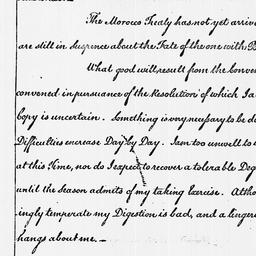 The Morocco Treaty has not yet arriv
are still in Suspence about the Fate of the one with B
What good will result from the Conven
convened in pursuance of the Resolution of which I a
Copy is uncertain. Something is very necessary to be d
Difficulties increase Day by Day. I am too unwell to
at this Time, nor do I expect to recover a tolerable Deg
until the Season admits of my taking Exercise. Altho
ingly temperate my Digestion is bad, and a linger
hangs about me.—